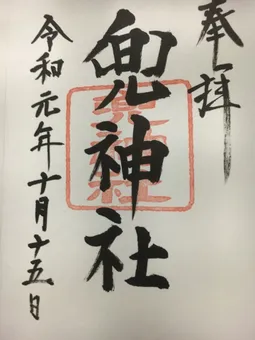 奉拝
兜神社
令和元年十月十五日